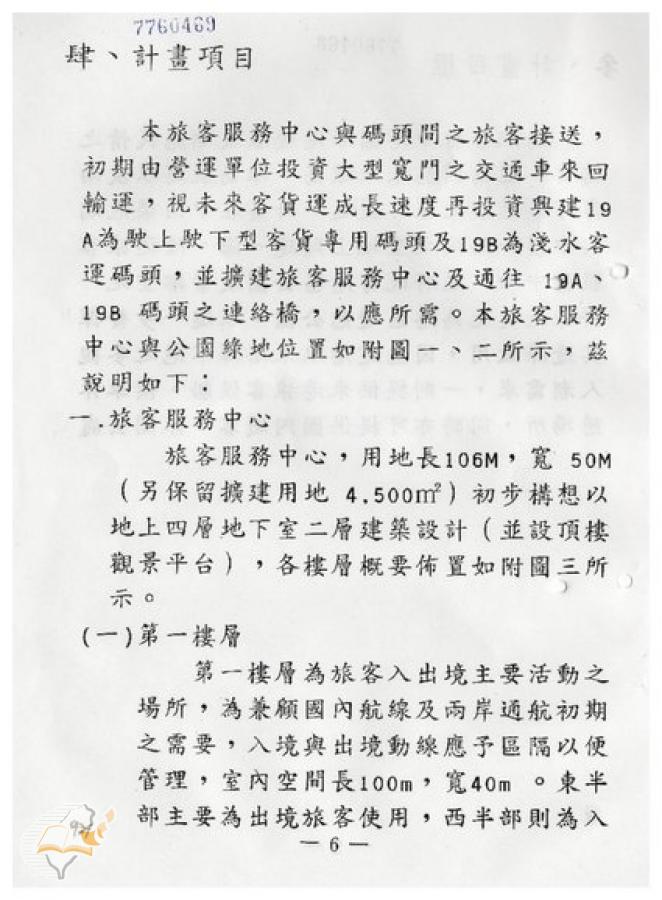 7760469
肆、計畫項目
本旅客服務中心與碼頭間之旅客接送，
初期由營運單位投資大型寬門之交通車來回
輸運，視未來客貨運成長速度再投資興建19
A為駛上駛下型客貨專用碼頭及19B為淺水客
運碼頭，並擴建旅客服務中心及通往 19A、
19B 碼頭之連絡橋，以應所需。本旅客服務
中心與公園綠地位置如附圖一、二所示，茲
說明如下：
一.旅客服務中心
旅客服務中心，用地長106M，寬 50M
（另保留擴建用地 4,500㎡）初步構想以
地上四層地下室二層建築設計（並設頂樓
觀景平台），各樓層概要佈置如附圖三所
示。
(一)第一樓層
第一樓層為旅客入出境主要活動之
場所，為兼顧國內航線及兩岸通航初期
之需要，入境與出境動線應予區隔以便
管理，室內空間長100m，寬40m 。東半
部主要為出境旅客使用，西半部則為入
— 6 —